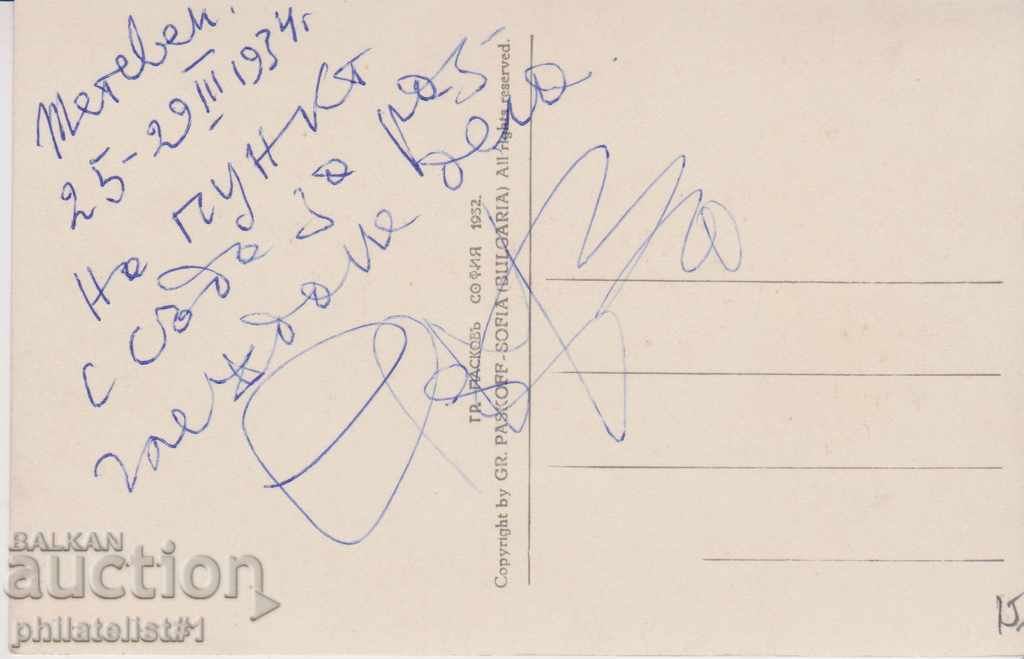 Тетевен.
25-29 III 1934г
на пункт
с съда за раз-
глеждане дела
ГР. ПАСКОВЪ СОФИЯ 1932.
Copyright by GR. PASKOFF-SOFIA (BULGARIA) All rights reserved.
BALKAN
auction
philatelist#1